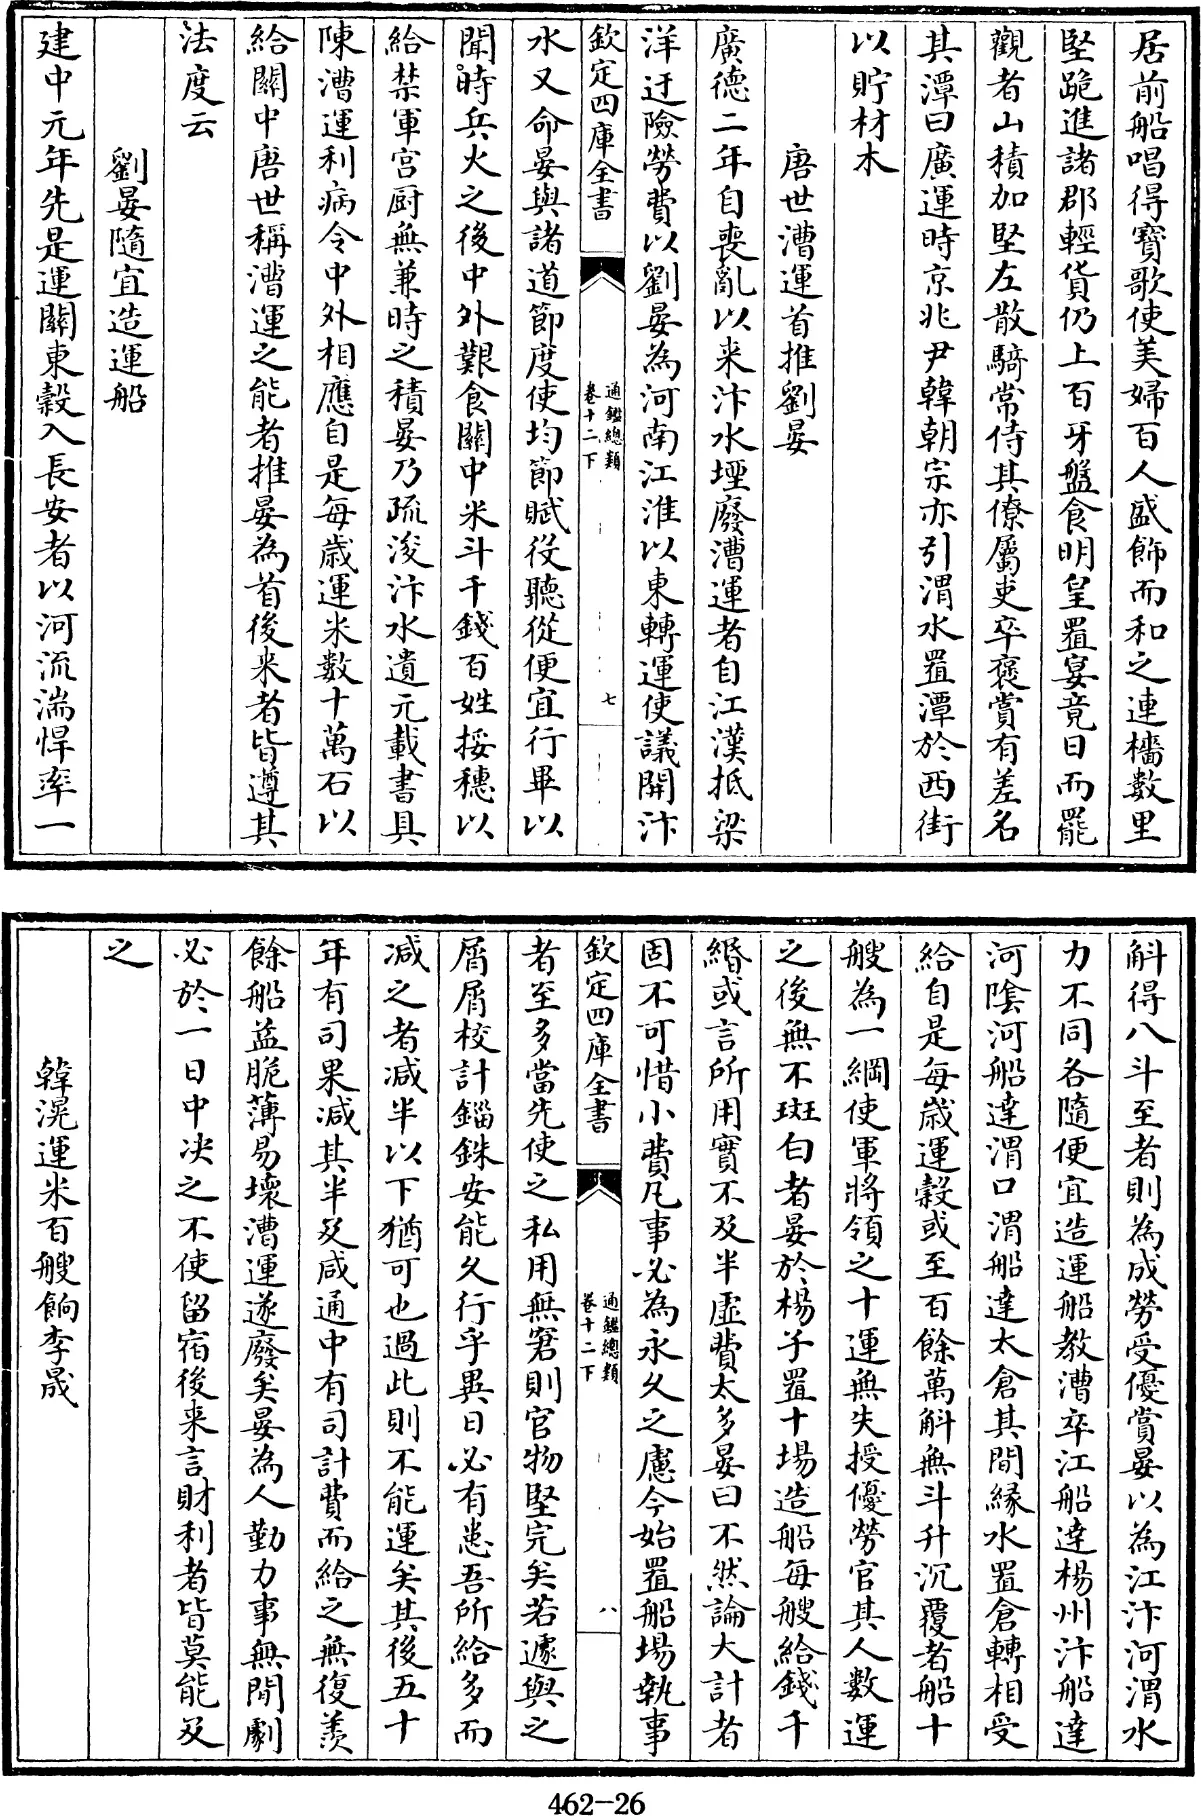 居前船唱得寳歌使美婦百人盛飾而和之連檣數里
堅跪進諸郡輕貨仍上百牙盤食明皇置宴竟日而罷
觀者山積加堅左散騎常侍其僚屬吏卒褒賞有差名
其潭曰廣運時京兆尹韓朝宗亦引渭水置潭於西街
以貯材木
唐世漕運首推劉晏
廣德二年自喪亂以來汴水堙廢漕運者自江漢抵梁
洋迂險勞費以劉晏為河南江淮以東轉運使議開汴
欽定四庫全書
通鑑總類
卷十二下
七
水又命晏與諸道節度使均節賦役聽從便宜行畢以
聞時兵火之後中外艱食關中米斗千錢百姓挼穗以
給禁軍宫厨無兼時之積晏乃疏浚汴水遺元載書具
陳漕運利病令中外相應自是每歲運米數十萬石以
給關中唐世稱漕運之能者推晏為首後來者皆遵其
法度云
劉晏隨宜造運船
建中元年先是運關東穀入長安者以河流湍悍率一
斛得八斗至者則為成勞受優賞晏以為江汴河渭水
力不同各隨便宜造運船教漕卒江船達楊州汴船達
河隂河船達渭口渭船達太倉其間緣水置倉轉相受
給自是每歲運穀或至百餘萬斛無斗升沉覆者船十
艘為一綱使軍將領之十運無失授優勞官其人數運
之後無不斑白者晏於楊子置十場造船每艘給錢千
緡或言所用實不及半虛費太多晏曰不然論大計者
固不可惜小費凡事必為永久之慮今始置船場執事
欽定四庫全書
通鑑總類
卷十二下
八
者至多當先使之私用無窘則官物堅完矣若遽與之
屑屑校計錙銖安能久行乎異日必有患吾所給多而
減之者减半以下猶可也過此則不能運矣其後五十
年有司果减其半及咸通中有司計費而給之無復羨
餘船益脆薄易壞漕運遂廢矣晏為人勤力事無閒劇
必於一日中决之不使留宿後來言財利者皆莫能及
之
韓滉運米百艘餉李晟
462-26